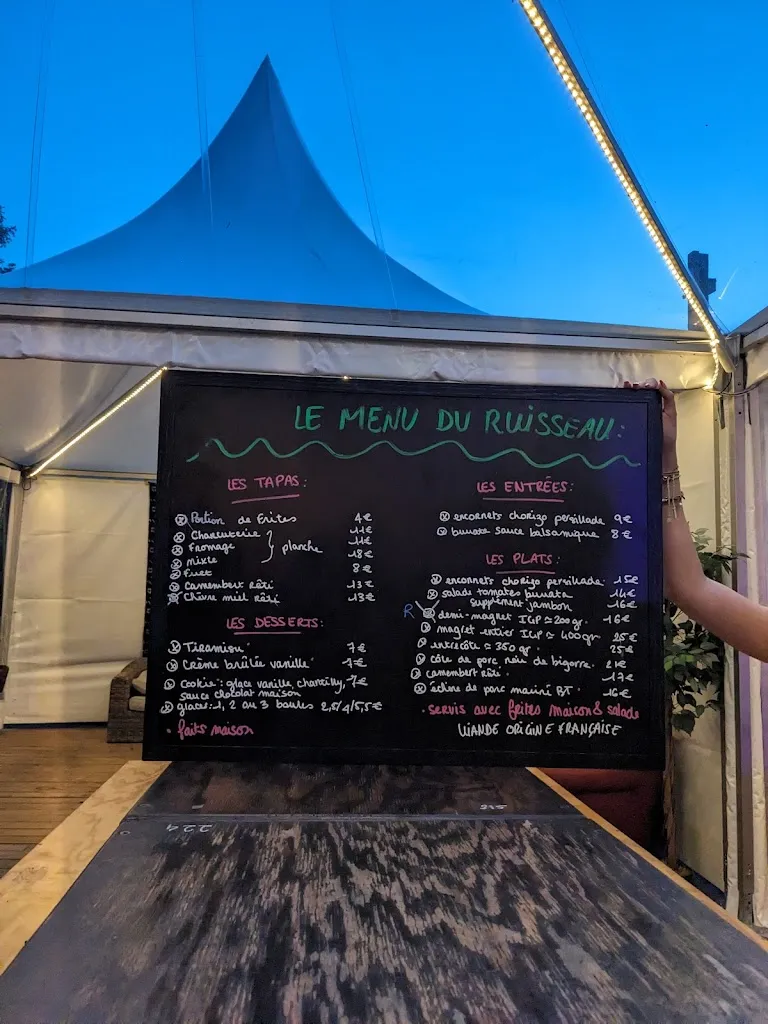 LE MENU DU RUISSEAU:
LES TAPAS:
Portion de frites 4€
Charcuterie 11€
Fromage 11€
Mixte 18€
planche
Fuet 8€
Camembert Rôti 13€
Chèvre miel Rôti 13€
LES DESSERTS:
Tiramisu 7€
Crème brûlée vanille 7€
Cookie: glace vanille, chantilly, 7€
sauce chocolat maison
glaces: 1, 2 ou 3 boules 2,5/4/5,5€
. faits maison
LES ENTRÉES:
encornets chorizo persillade 9€
burrata sauce balsamique 8€
LES PLATS:
encornets chorizo persillade 15€
salade tomates burrata 14€
supplément jambon 16€
R demi-magret IGP ≃ 200 gr. 16€
magret entier IGP ≃ 400 gr 25€
entrecôte ≃ 350 gr 25€
côte de porc noir de bigorre. 21€
camembert rôti. 17€
échine de porc mariné BT. 16€
. servis avec frites maison & salade
VIANDE ORIGINE FRANÇAISE
224